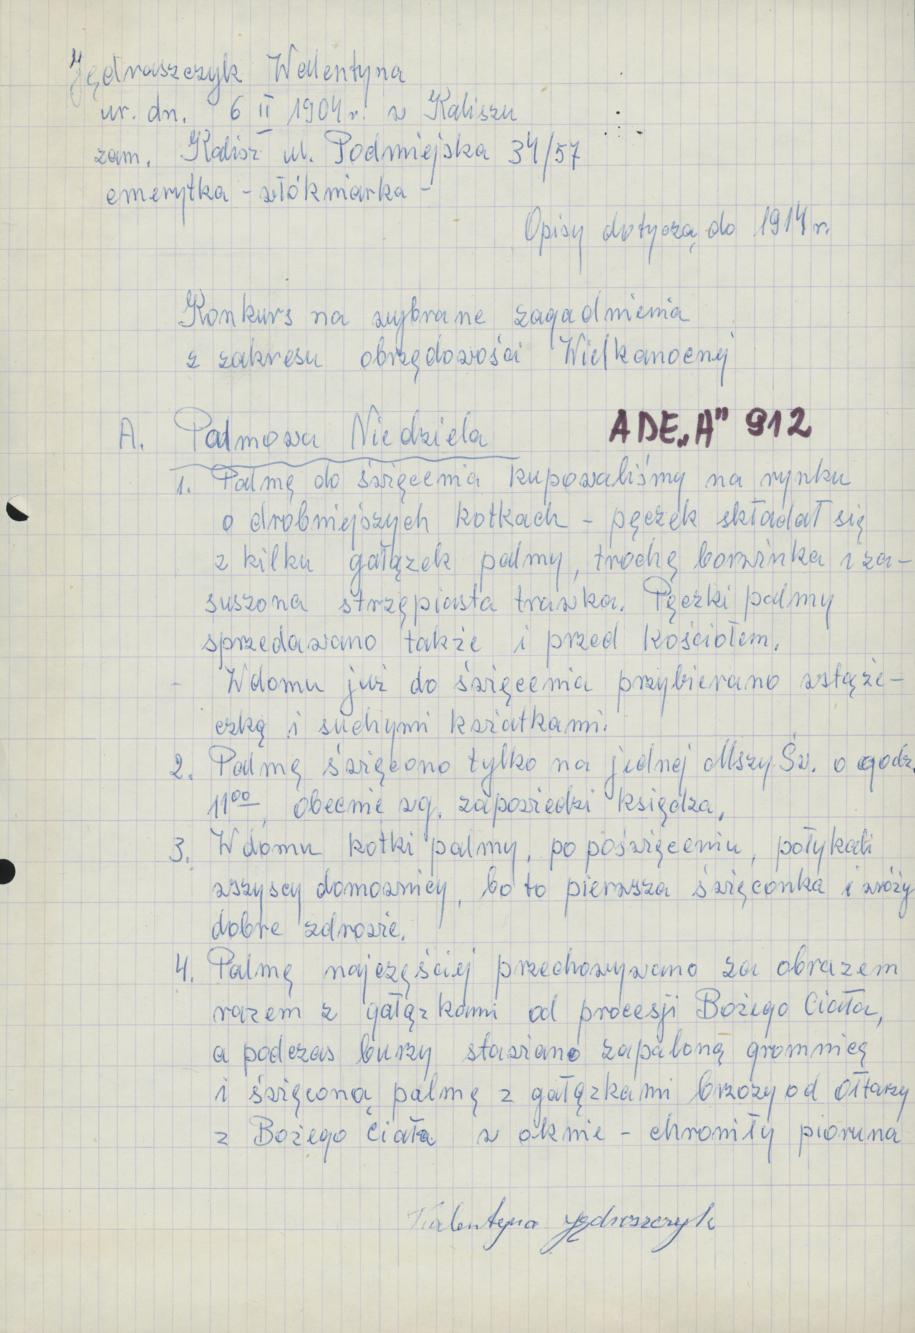 Jędraszczyk Walentyna
ur. dn. 6 II 1904 r. w Kaliszu
zam. Kalisz ul. Podmiejska 34/57
emerytka - włókniarka -
Opisy dotyczą do 1914 r.
Konkurs na wybrane zagadnienia
z zakresu obrzędowości Wielkanocnej
A. Palmowa Niedziela
ADE „A” 912
1. Palmę do święcenia kupowaliśmy na rynku
o drobniejszych kotkach - pęczek składał się
z kilku gałązek palmy, trochę borwinka i za-
suszona strzępiasta trawka. Pęczki palmy
sprzedawano także i przed kościołem.
- W domu już do święcenia przybierano wstąże-
czką i suchymi kwiatkami.
2. Palmę święcono tylko na jednej Mszy Św. o godz.
11⁰⁰, obecnie wg. zapowiedzi księdza.
3. W domu kotki palmy, po poświęceniu, połykali
wszyscy domownicy, bo to pierwsza święconka i wróży
dobre zdrowie.
4. Palmę najczęściej przechowywano za obrazem
razem z gałązkami od procesji Bożego Ciała,
a podczas burzy stawiano zapaloną gromnicę
i święconą palmę z gałązkami brzozy od Ołtarzy
z Bożego Ciała w oknie - chroniły pioruna
Walentyna Jędraszczyk